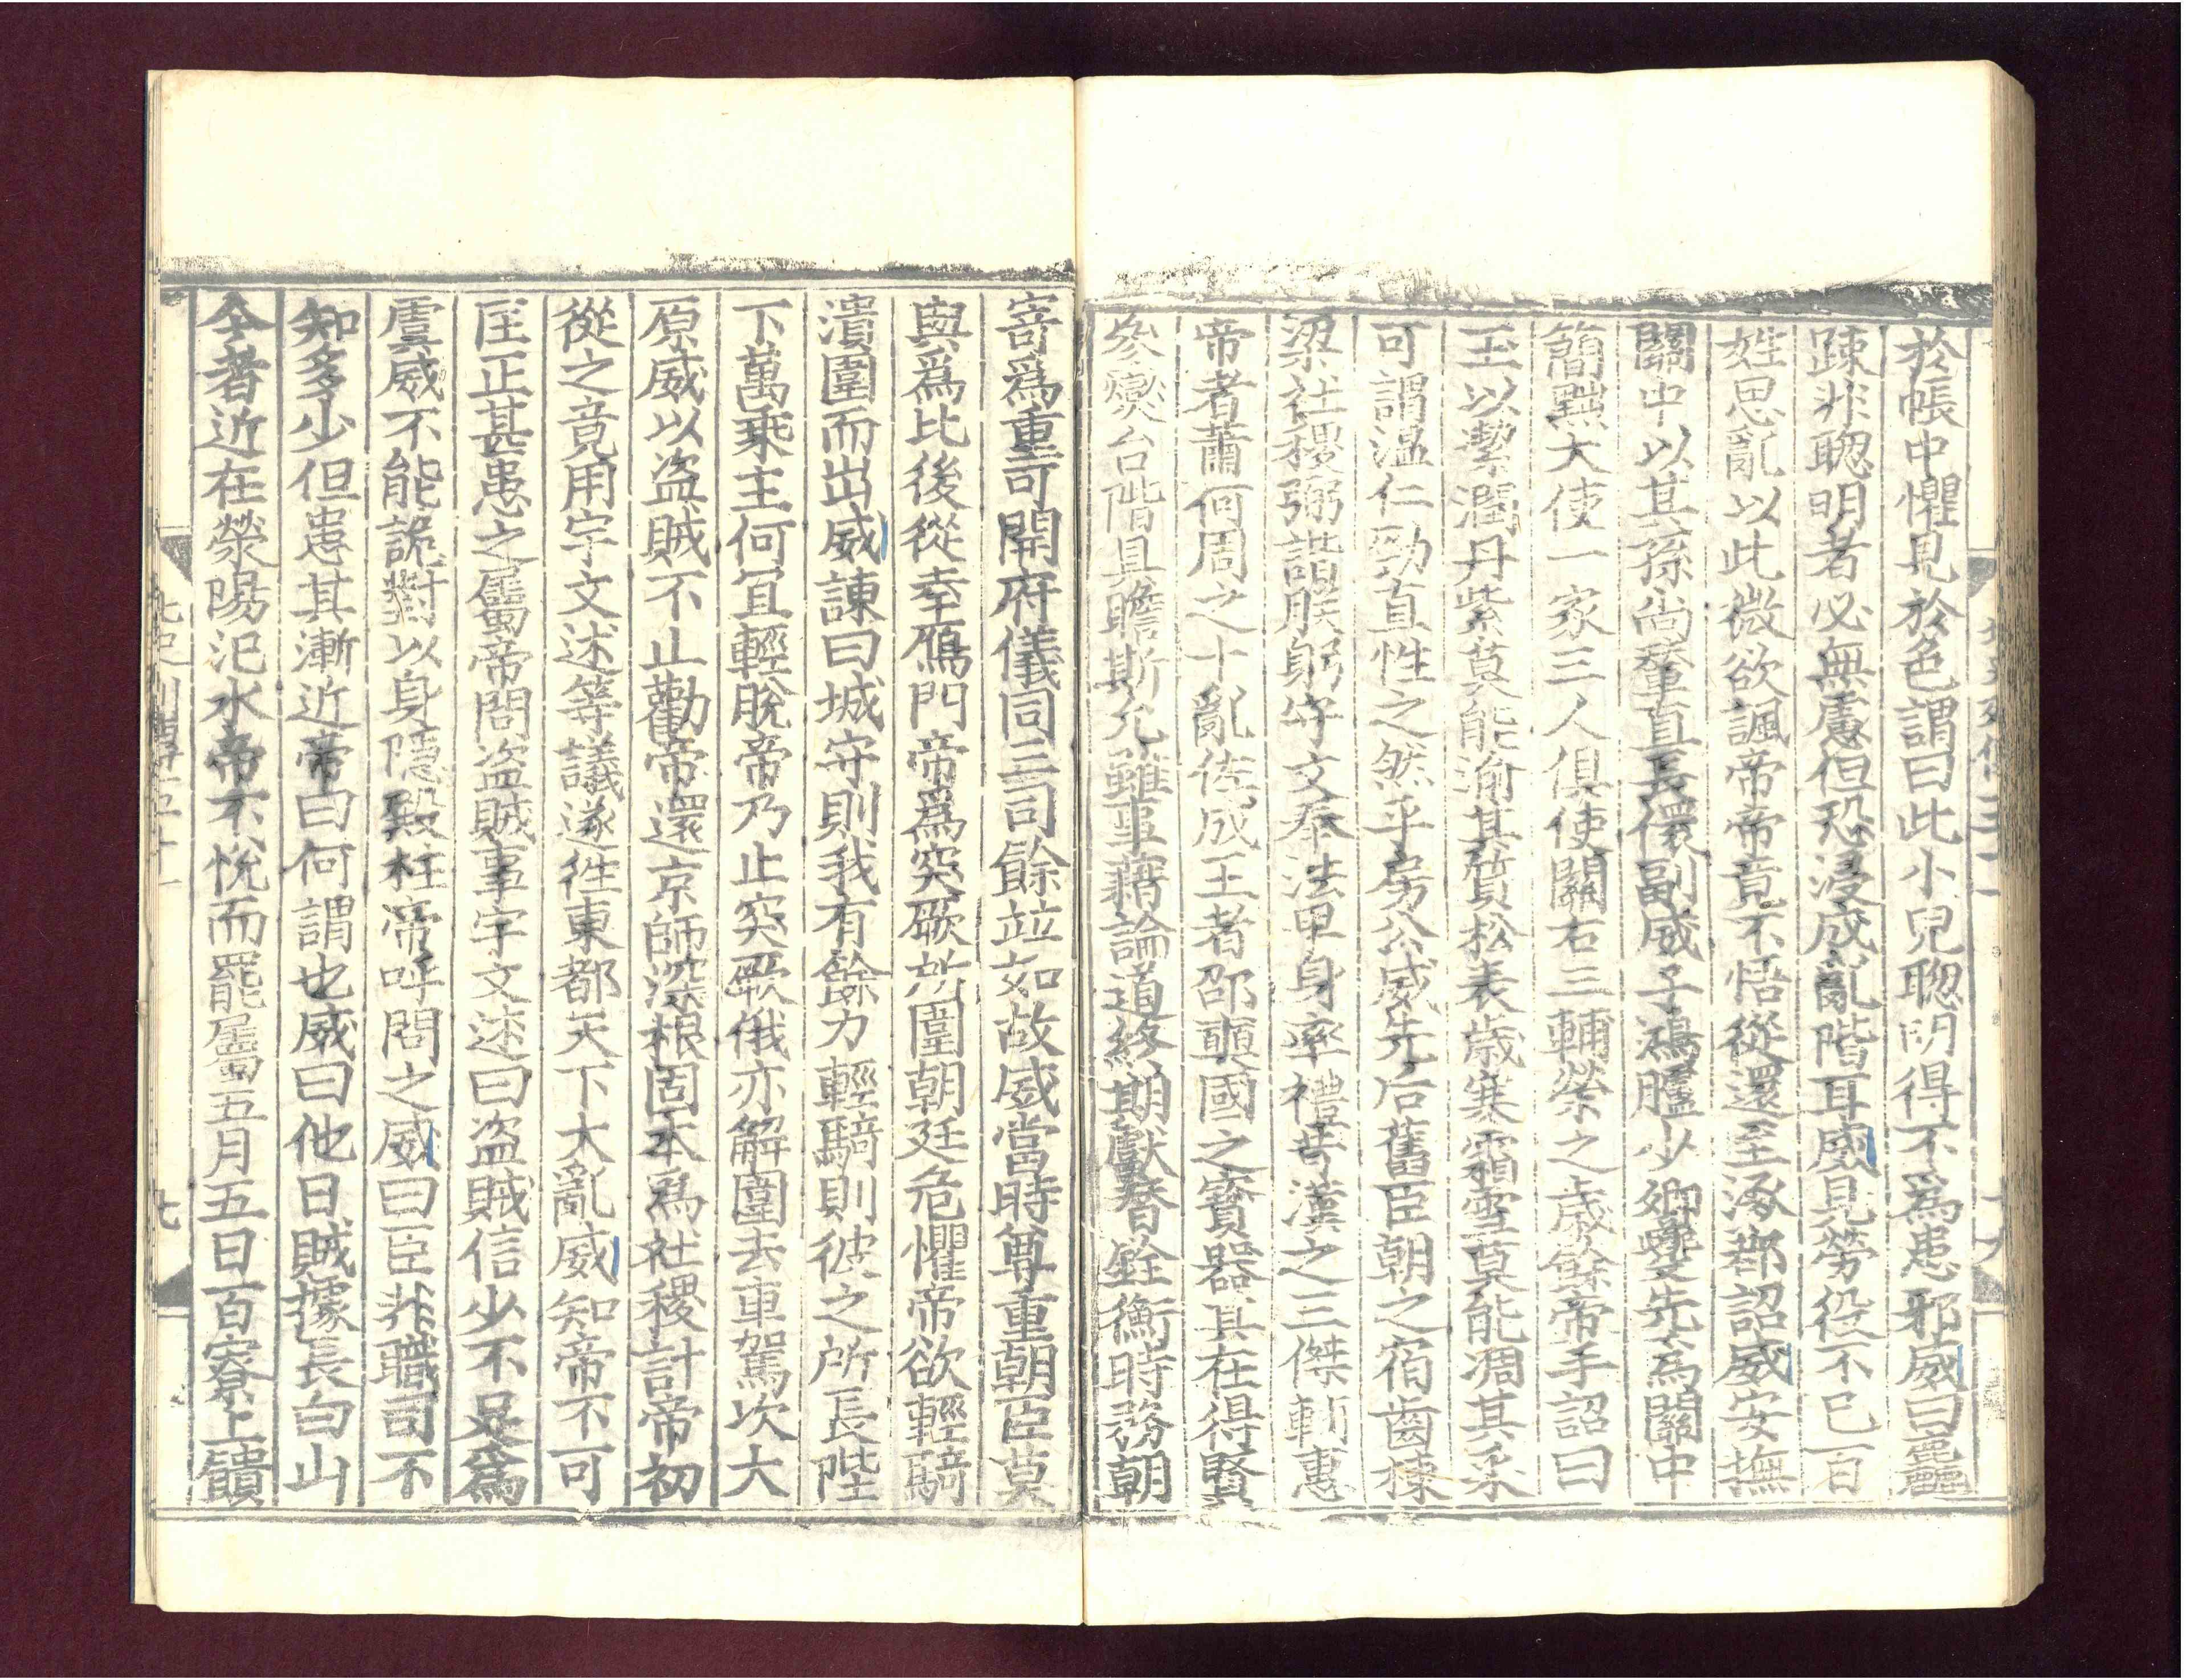 於帳中懼見於色謂曰此小兒聦明得不爲患邪威曰麤
踈非聦明者必無慮但恐浸成亂階耳威見勞役不已百
姓思亂以此微欲諷帝帝竟不悟從還至涿郡詔威安撫
關中以其孫尚輦直長儇副威子鴻臚少卿夔先爲關中
簡黜大使一家三人俱使關右三輔榮之歳餘帝手詔曰
玉以絜潤丹紫莫能渝其質松表歳寒霜雪莫能凋其采
可謂溫仁勁直性之然乎房公威先后舊臣朝之宿齒棟
梁社稷弼諧朕躬守文奉法卑身率禮昔漢之三傑輔惠
帝者蕭何周之十亂佐成王者邵奭國之寶器其在得賢
參燮台階具瞻斯允雖事藉論道終期獻替銓衡時務朝
寄爲重可開府儀同三司餘並如故威當時尊重朝臣莫
與爲比後從幸鴈門帝爲突厥所圍朝廷危懼帝欲輕騎
潰圍而出威諫曰城守則我有餘力輕騎則彼之所長陛
下萬乘主何冝輕脫帝乃止突厥俄亦解圍去車駕次太
原威以盗賊不止勸帝還京師深根固本爲社稷計帝初
從之竟用宇文述等議遂往東都天下大亂威知帝不可
匡正甚患之屬帝問盗賊事宇文述曰盗賊信少不足爲
虞威不能詭對以身隱殿柱帝呼問之威曰臣非職司不
知多少但患其漸近帝曰何謂也威曰他日賊據長白山
今者近在滎陽汜水帝不悅而罷屬五月五日百寮上饋
北史列傳五十一
七